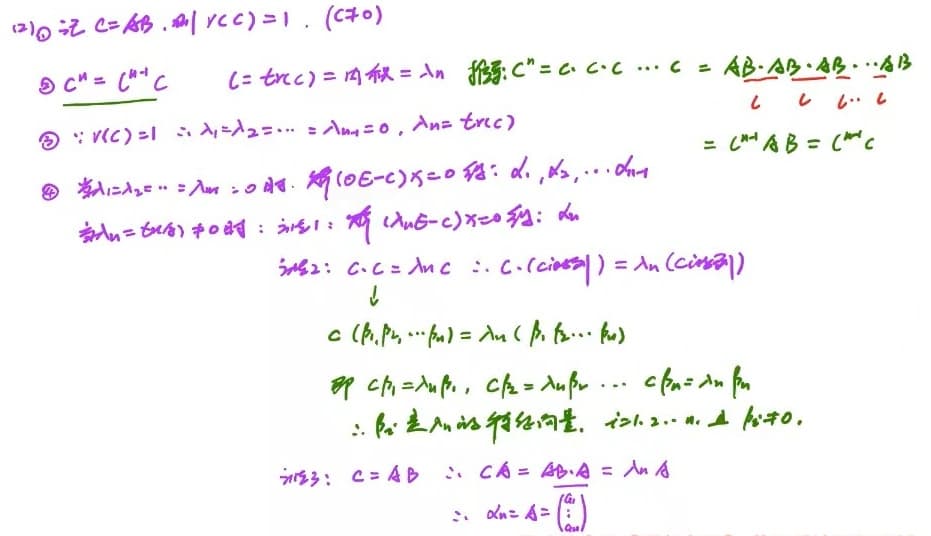 (2)① 记 C=AB.则 r(C)=1. (C≠0)
② Cⁿ = lⁿ⁻¹C l=tr(C)=内积=λn 推导: Cⁿ = C·C·C ··· C = AB·AB·AB···AB
l l l·· l
= lⁿ⁻¹AB = lⁿ⁻¹C
③ ∵ r(C)=1 ∴ λ₁=λ₂=···=λn-1=0, λn=tr(C)
④ 当λ₁=λ₂=··=λn-1=0时. 解(0E-C)x=0 得: α₁,α₂,···αn-1
当λn=tr(A)≠0时: 方法1: 解(λnE-C)x=0得: αn
方法2: C·C=λnC ∴ C·(C的列)=λn(C的列)
↓
C(β₁,β₂,···βn)=λn(β₁ β₂···βn)
即 Cβ₁=λnβ₁, Cβ₂=λnβ₂ ··· Cβn=λnβn
∴ βi 是λn的特征向量. i=1.2···n. 且 βi≠0.
方法3: C=AB ∴ CA=AB·A=λnA
∴ αn=A=(a₁ ⋮ an)